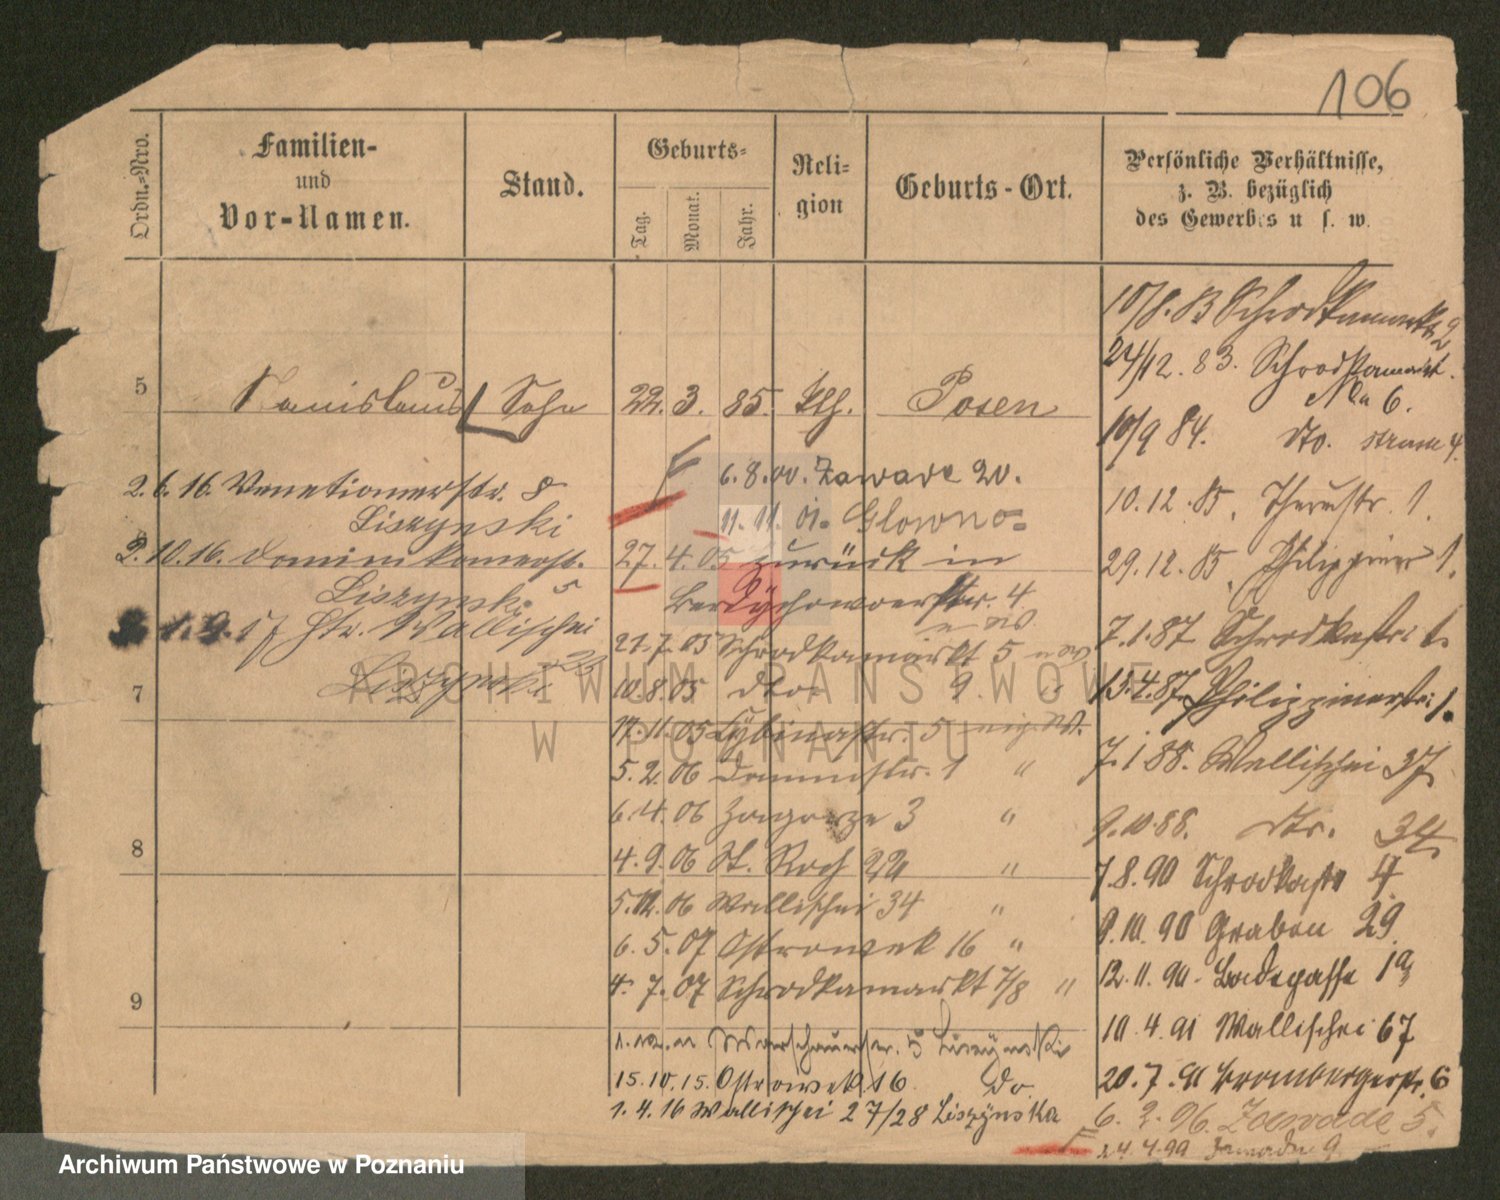 106
Ordn.-Nro.
Familien-
und
Vor-Namen.
Stand.
Geburts-
Tag.
Monat.
Jahr.
Reli-
gion
Geburts-Ort.
Persönliche Verhältnisse,
z. B. bezüglich
des Gewerbes u s. w.
5 Stanislaus Sohn 22. 3. 85. kth. Posen
2. 6. 16. Venetianerstr. 8
Liszynski
2. 10. 16. Dominikanerstr.
Liszynski 5
1. 9. 17 Wallischei
23
7
8
9
6. 8. 00. Zawade 20.
11. 11. 01. Glowno
27. 4. 05 zurück in
Berdychowoerstr. 4
21. 7. 05 Schrodkamarkt 5
10. 8. 05 dto 9 "
17. 11. 05 Cybinastr. 5
5. 2. 06 Dammstr. 1 "
6. 4. 06 Zagorze 3 "
4. 9. 06 St. Roch "
5. 12. 06 Wallischei 34 "
6. 5. 07 Ostrowek 16 "
4. 7. 07 Schrodkamarkt 7/8 "
Warschauerstr. 5
15. 10. 15. Ostrowek 16 do.
1. 4. 16 Wallischei 27/28 Liszynska
10/8. 83 Schrodkamarkt 2
24/12. 83. Schrodkamarkt.
No 6.
10/9 84. dto. 4.
10. 12. 85. Thorstr. 1.
29. 12. 85. Philippiner 1.
7. 1. 87 Schrodkastr. 1.
13. 4. 87. Philippinerstr. 1.
7. 1. 88. Wallischei 37.
9. 10. 88. dto. 34
7. 8. 90 Schrodkastr 4
9. 10. 90 Graben 29
12. 11. 90. Badegasse 1a
10. 4. 91 Wallischei 67
20. 7. 91 Brombergerstr. 6
6. 2. 96. Zawade 5.
24. 4. 99 Zawade 9
ARCHIWUM PAŃSTWOWE
W POZNANIU
Archiwum Państwowe w Poznaniu